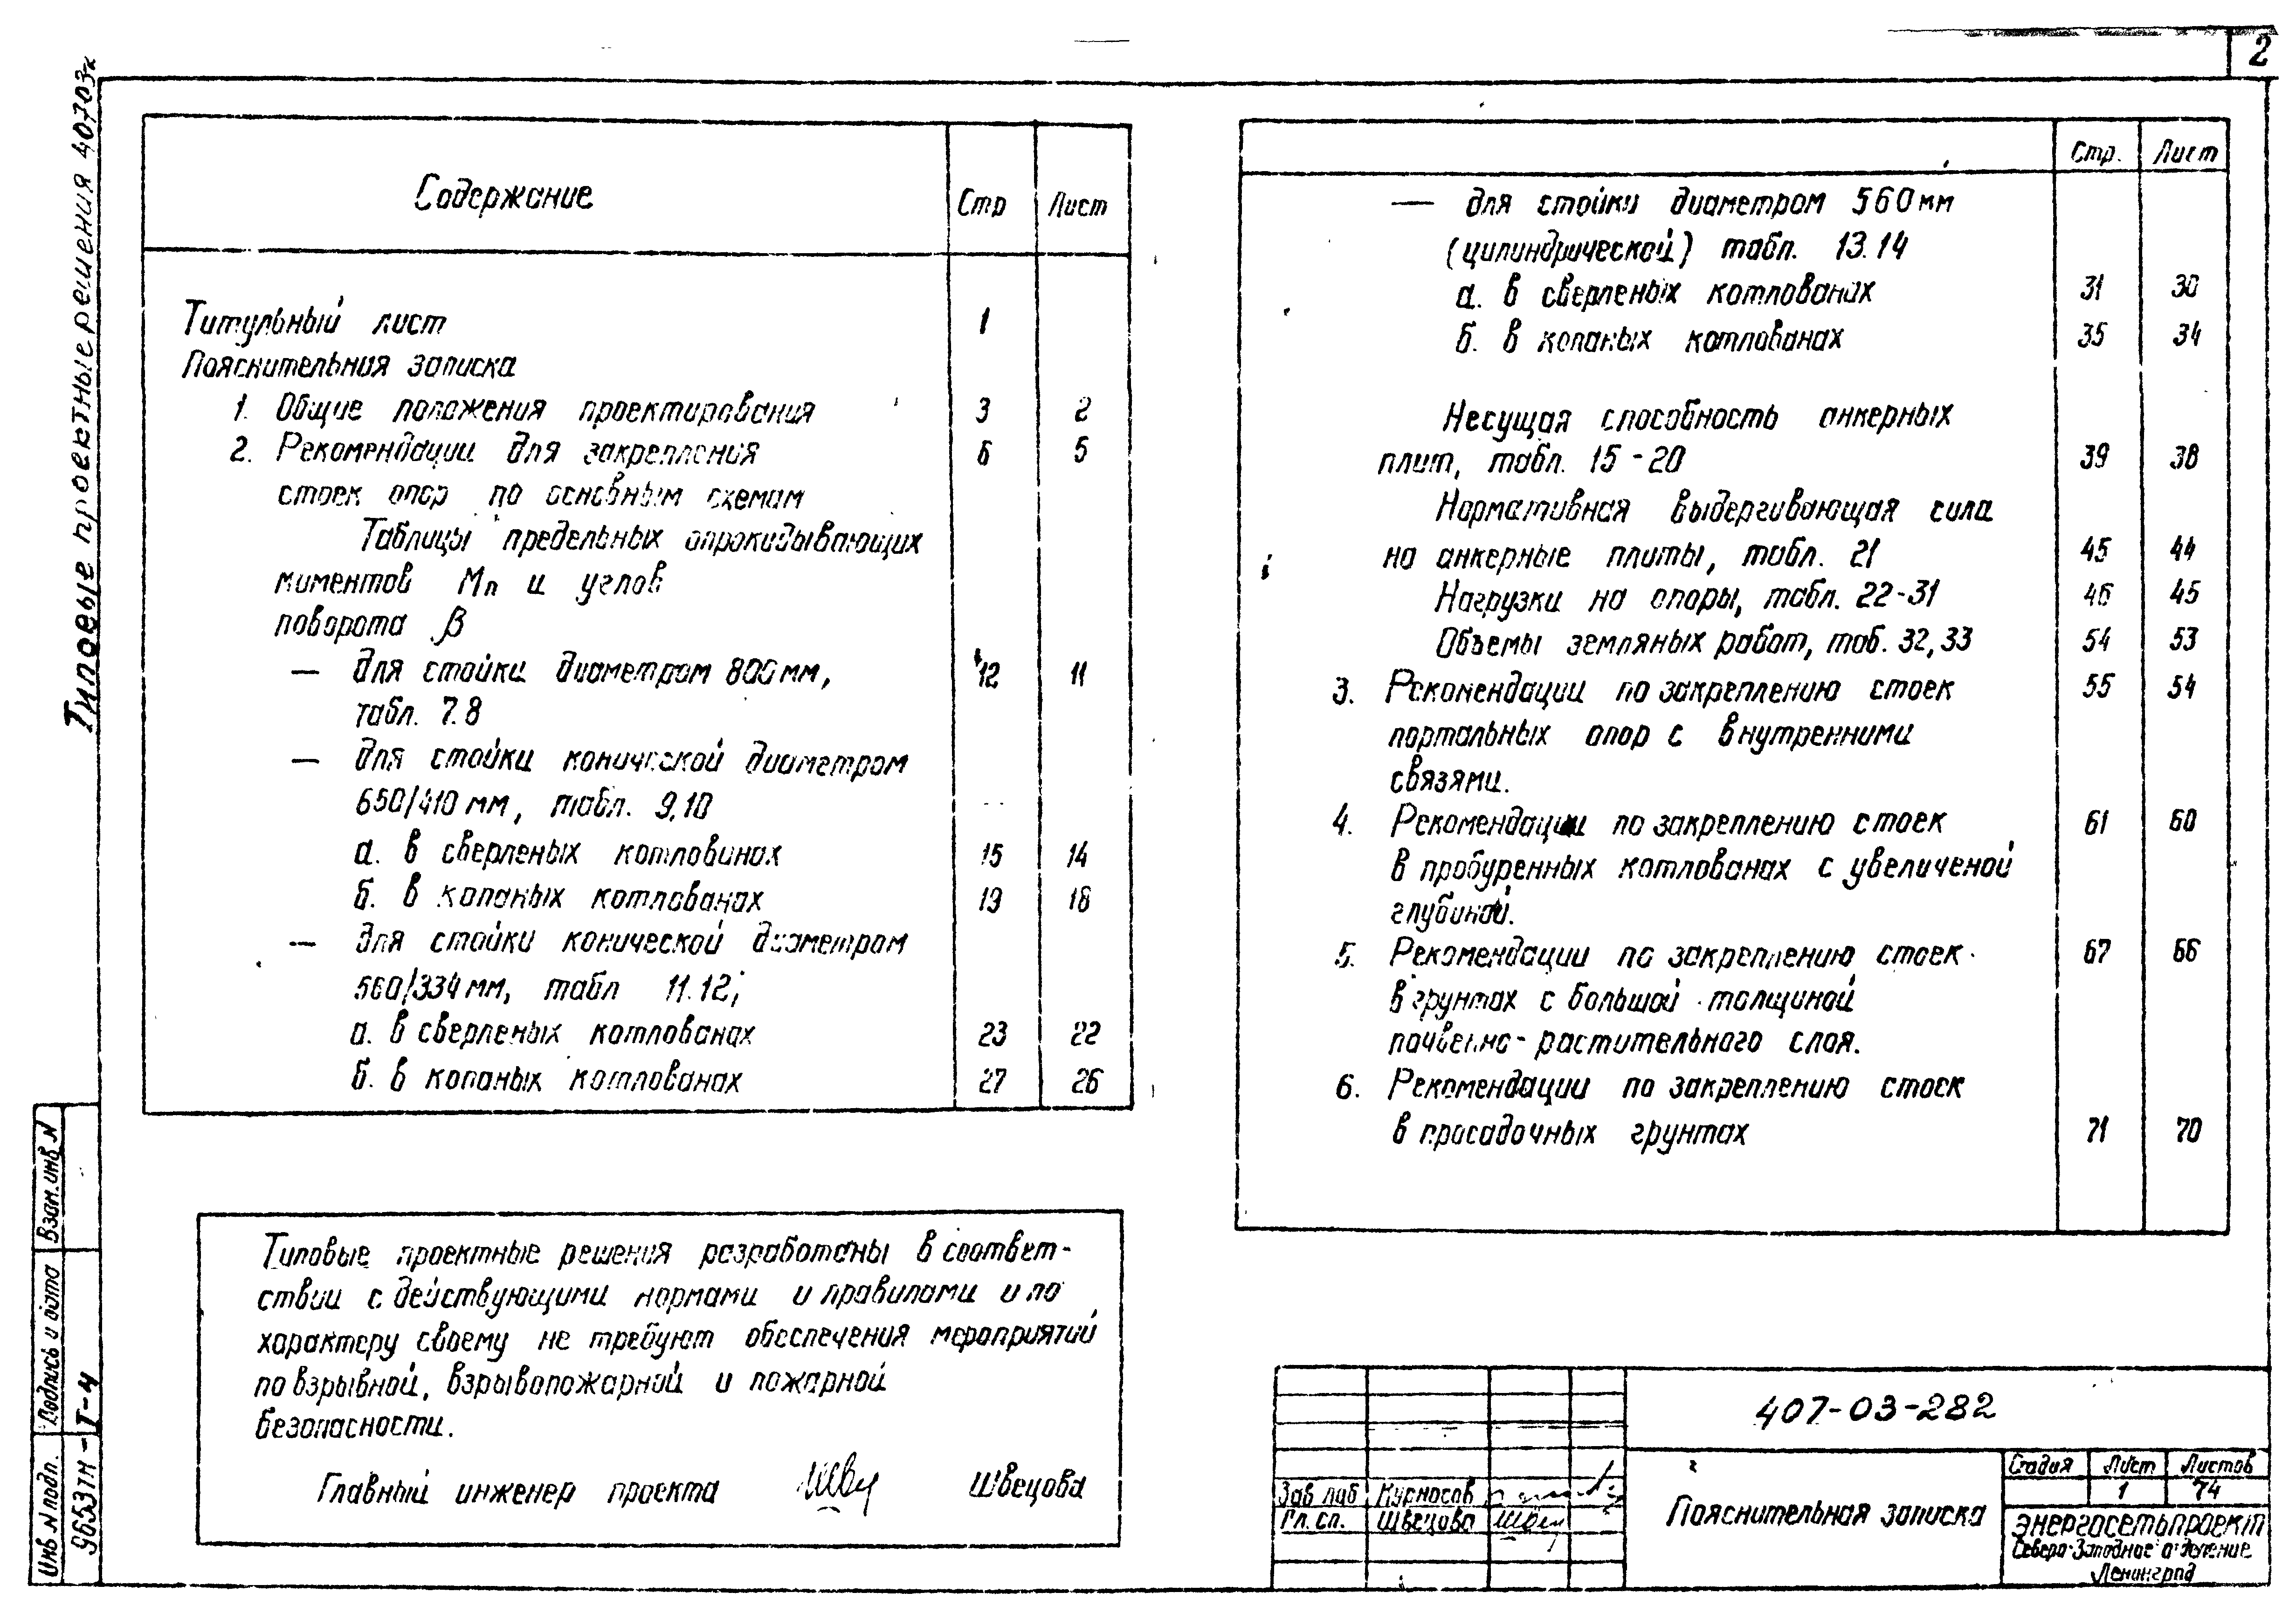 2
Типовые проектные решения 40703
Содержание Стр Лист
Титульный лист 1
Пояснительная записка
1. Общие положения проектирования 3 2
2. Рекомендации для закрепления 6 5
стоек опор по основным схемам
Таблицы предельных опрокидывающих
моментов Мп и углов
поворота β
— для стойки диаметром 800 мм, 12 11
табл. 7.8
— для стойки конической диаметром
650/410 мм, табл. 9,10
а. в сверленых котлованах 15 14
б. в копаных котлованах 19 18
— для стойки конической диаметром
560/334 мм, табл 11.12;
а. в сверленых котлованах 23 22
б. в копаных котлованах 27 26
Стр. Лист
— для стойки диаметром 560 мм
(цилиндрической) табл. 13.14
а. в сверленых котлованах 31 30
б. в копаных котлованах 35 34
Несущая способность анкерных
плит, табл. 15-20 39 38
Нормативная выдергивающая сила
на анкерные плиты, табл. 21 45 44
Нагрузки на опоры, табл. 22-31 46 45
Объемы земляных работ, таб. 32,33 54 53
3. Рекомендации по закреплению стоек 55 54
портальных опор с внутренними
связями.
4. Рекомендации по закреплению стоек 61 60
в пробуренных котлованах с увеличеной
глубиной.
5. Рекомендации по закреплению стоек 67 66
в грунтах с большой толщиной
почвенно-растительного слоя.
6. Рекомендации по закреплению стоек
в просадочных грунтах 71 70
Типовые проектные решения разработаны в соответ-
ствии с действующими нормами и правилами и по
характеру своему не требуют обеспечения мероприятий
по взрывной, взрывопожарной и пожарной
безопасности.
Главный инженер проекта Швецова
Взам. инв N
Подпись и дата
Инв N подл.
9653тм-Т-4
407-03-282
Зав лаб Курносов
Гл. сп. Швецова
Пояснительная записка
Стадия Лист Листов
1 74
ЭНЕРГОСЕТЬПРОЕКТ
Северо-Западное отделение
Ленинград